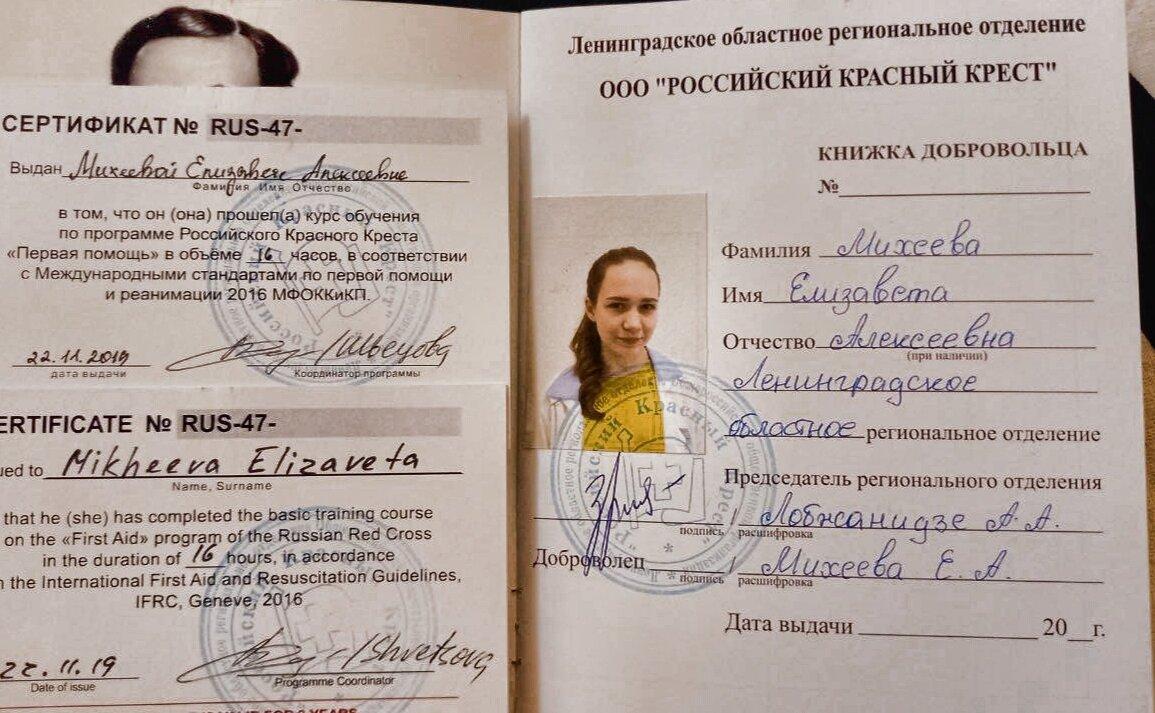 СЕРТИФИКАТ № RUS-47-
Выдан Михеевой Елизавете Алексеевне
Фамилия Имя Отчество
в том, что он (она) прошел(а) курс обучения
по программе Российского Красного Креста
«Первая помощь» в объёме 16 часов, в соответствии
с Международными стандартами по первой помощи
и реанимации 2016 МФОККиКП.
22.11.2019 /Швецова
дата выдачи Координатор программы
ERTIFICATE № RUS-47-
ued to Mikheeva Elizaveta
Name, Surname
that he (she) has completed the basic training course
on the «First Aid» program of the Russian Red Cross
in the duration of 16 hours, in accordance
the International First Aid and Resuscitation Guidelines,
IFRC, Geneve, 2016
22.11.19 /Shvetsova
Date of issue Programme Coordinator
Ленинградское областное региональное отделение
ООО "РОССИЙСКИЙ КРАСНЫЙ КРЕСТ"
КНИЖКА ДОБРОВОЛЬЦА
№
Фамилия Михеева
Имя Елизавета
Отчество Алексеевна
(при наличии)
Ленинградское
областное региональное отделение
Председатель регионального отделения
/ Лобжанидзе А. А.
подпись расшифровка
Доброволец / Михеева Е. А.
подпись расшифровка
Дата выдачи 20 г.